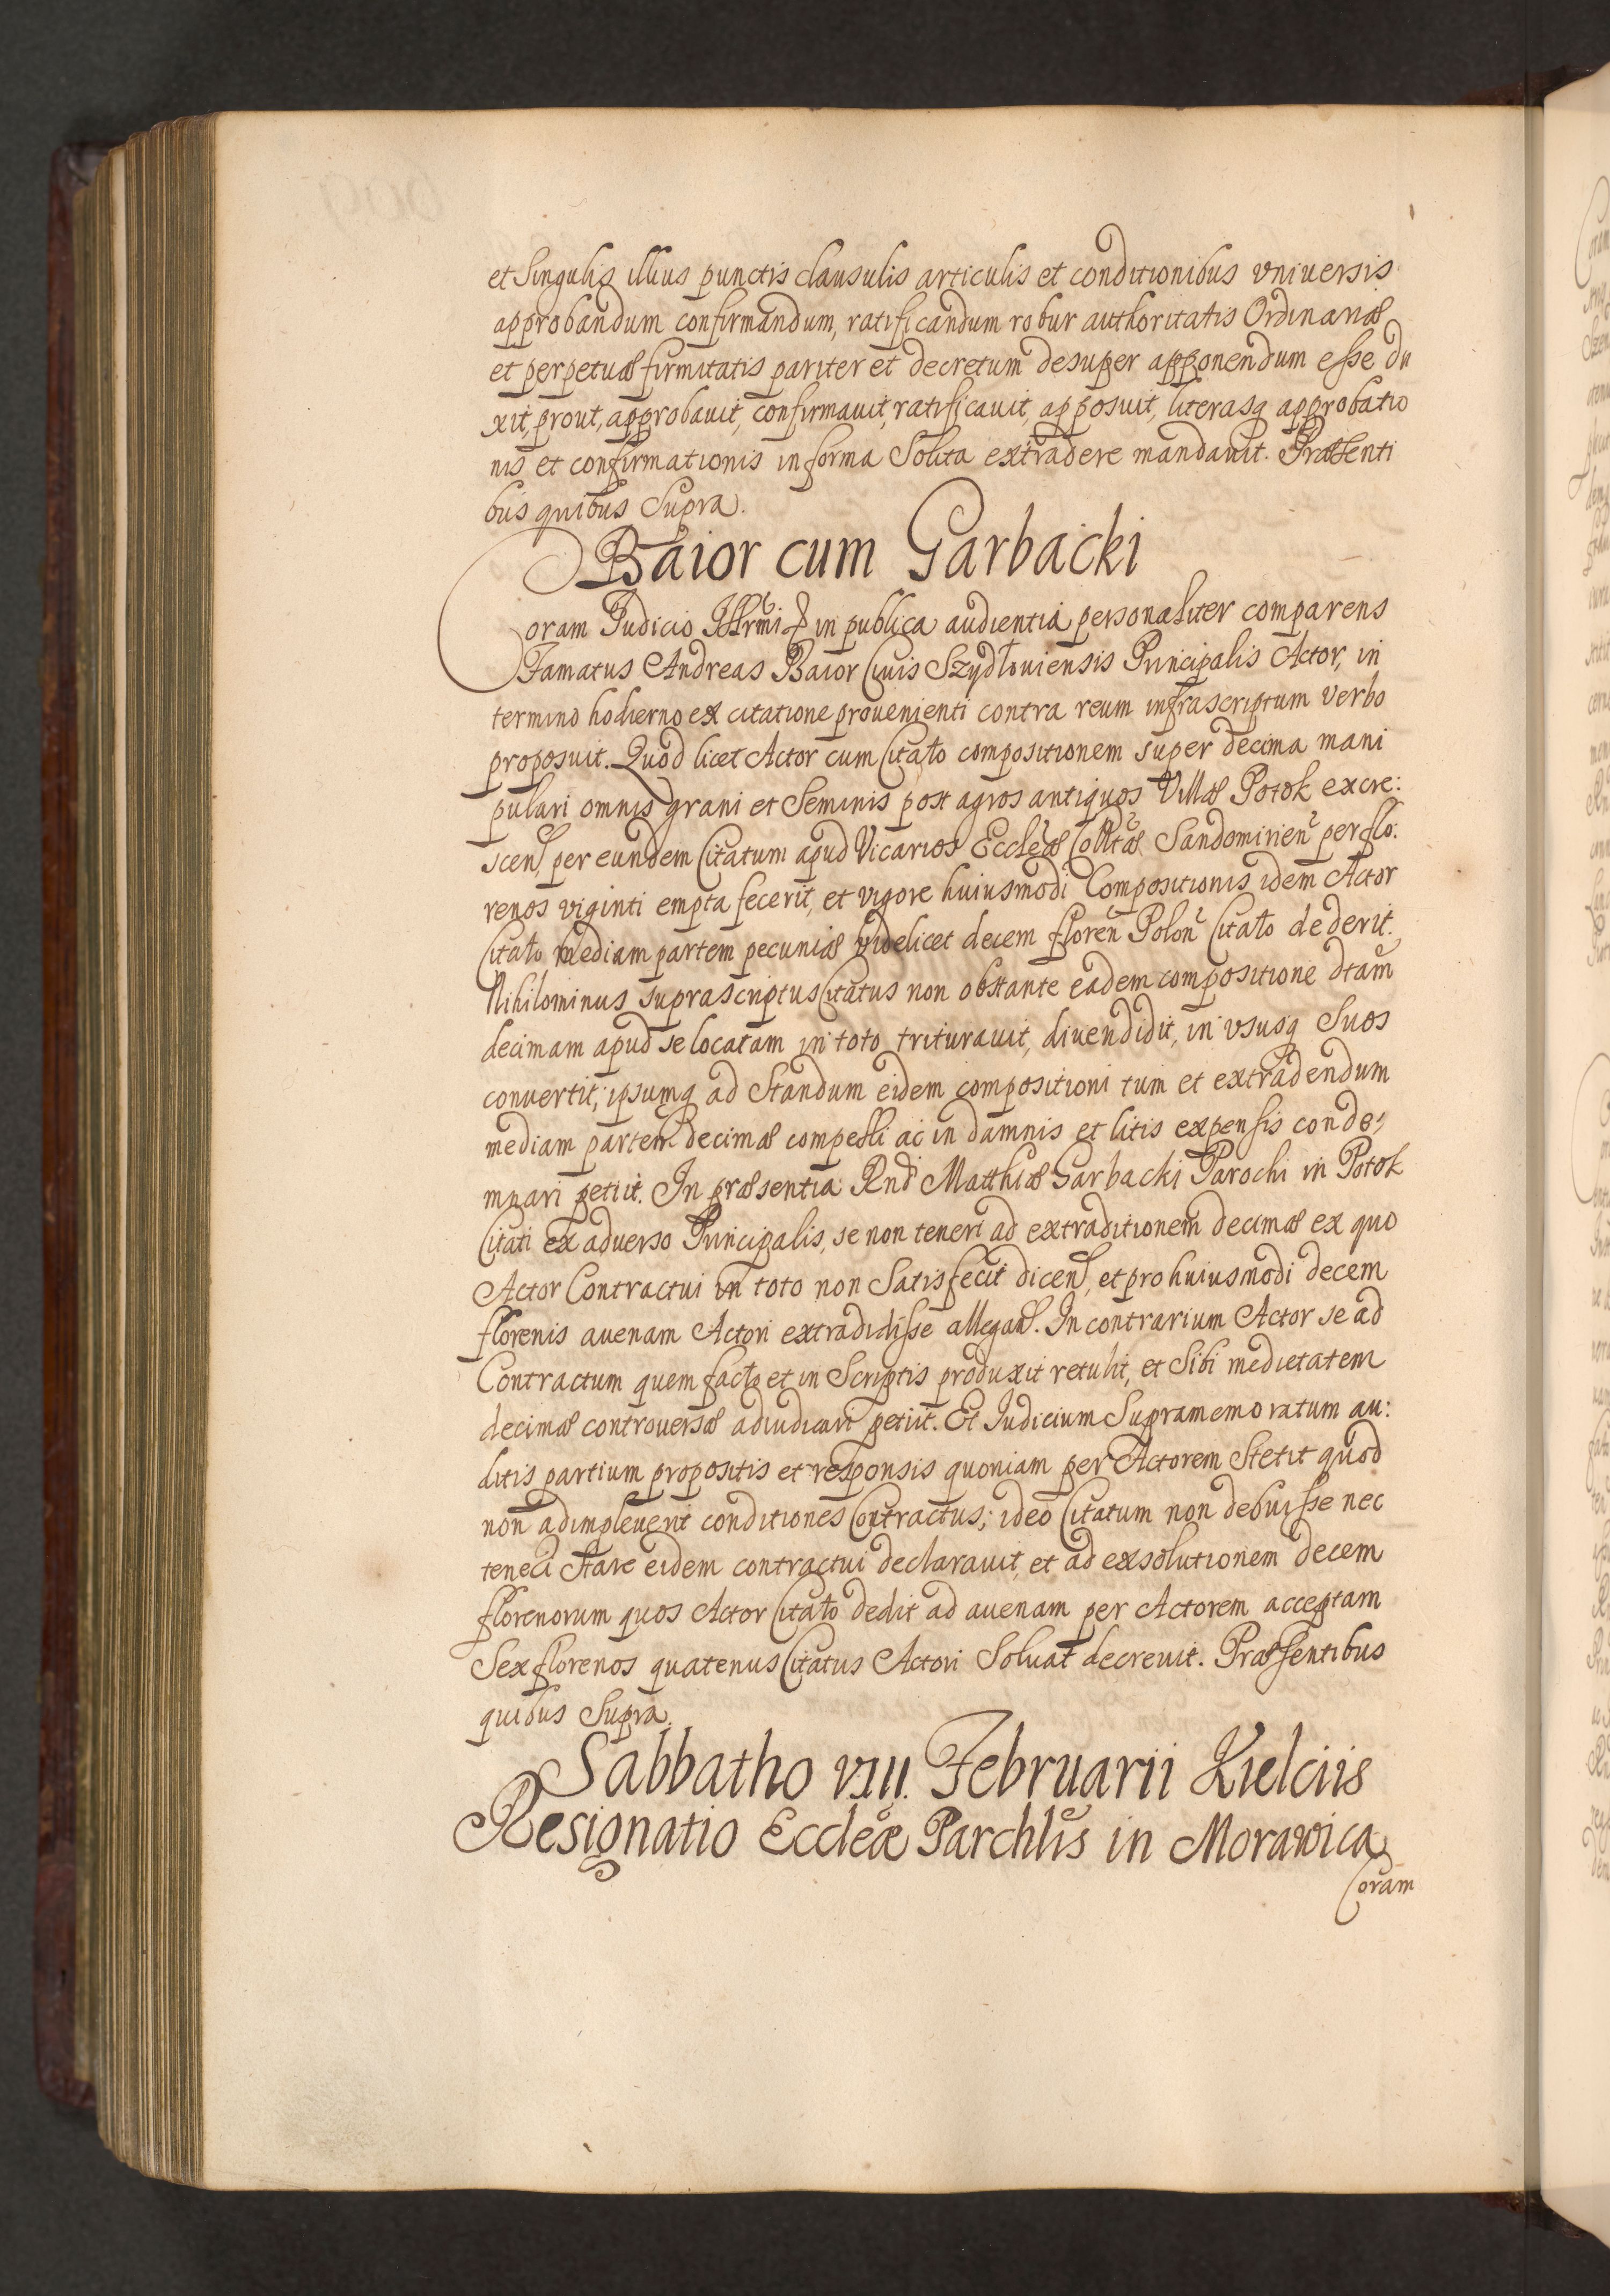 et Singulis illius punctis clausulis articulis et conditionibus vniuersis
approbandum confirmandum, ratificandum robur authoritatis Ordinariæ
et perpetuæ firmitatis pariter et decretum desuper apponendum esse du
xit, prout, approbauit, confirmauit, ratificauit, apposuit, literasq approbatio
nis et confirmationis in forma Solita extradere mandauit. Præsenti
bus quibus Supra.
Baior cum Garbacki
Coram Judicio in publica audientia personaliter comparens
Famatus Andreas Baior Ciuis Szydłouiensis Principalis Actor, in
termino hodierno ex citatione prouenienti contra reum infrascriptum verbo
proposuit. Quod licet Actor cum Citato compositionem super decima mani
pulari omnis grani et Seminis post agros antiquos Villæ Potok excre:
scen, per eundem Citatum apud Vicarios Eccleæ Colltæ Sandomirien per flo:
renos viginti empta fecerit, et vigore huiusmodi Compositionis idem Actor
Citato, mediam partem pecuniæ videlicet decem floren Polon Citato dederit.
Nihilominus suprascriptus Citatus non obstante eadem compositione dtam
decimam apud se locatam in toto triturauit, diuendidit, in vsusq Suos
conuertit; ipsumq ad Standum eidem compositioni tum et extradendum
mediam partem decimæ compelli ac in damnis et litis expensis conde:
mnari petiit. In præsentia Rndi Matthiæ Garbacki Parochi in Potok
Citati ex aduerso Principalis, se non teneri ad extraditionem decimæ ex quo
Actor Contractui in toto non Satisfecit dicen, et pro huiusmodi decem
florenis auenam Actori extradidisse allegan. In contrarium Actor se ad
Contractum quem facto et in Scriptis produxit retulit, et Sibi medietatem
decimæ controuersæ adiudicari petiit. Et Judicium Supramemoratum au:
ditis partium propositis et responsis quoniam per Actorem Stetit quod
non adimpleuerit conditiones Contractus; ideo Citatum non debuisse nec
teneri Stare eidem contractui declarauit, et ad exsolutionem decem
florenorum quos Actor Citato dedit ad auenam per Actorem acceptam
Sex florenos quatenus Citatus Actori Soluat decreuit. Præsentibus
quibus Supra.
Sabbatho VIII. Februarii Kielciis
Resignatio Eccleæ Parchlis in Morawica
Coram